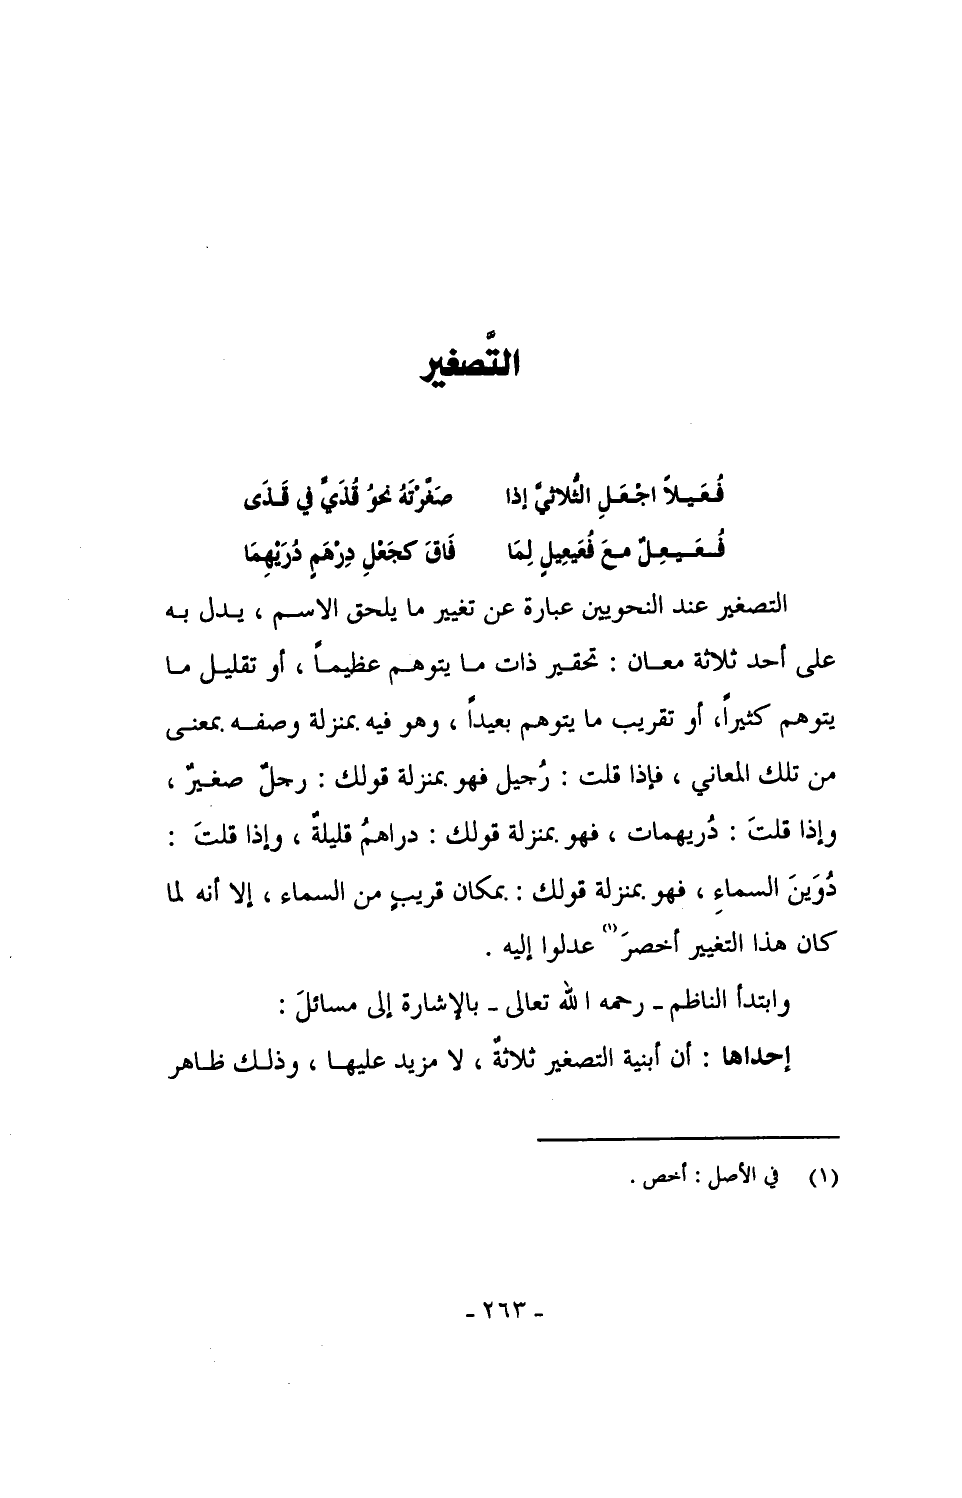 التَّصغير
فُعَيلاً اجْعَلِ الثُّلاثيَّ إذا صَغَّرْتَهُ نحوُ قُذَيٍّ في قَذَى
فُعَيعِلٌ معَ فُعَيعِيلٍ لِمَا فَاقَ كجَعْلِ دِرْهَمٍ دُرَيْهِمَا
التصغير عند النحويين عبارة عن تغيير ما يلحق الاسم ، يدل به
على أحد ثلاثة معان : تحقير ذات ما يتوهم عظيماً ، أو تقليل ما
يتوهم كثيراً، أو تقريب ما يتوهم بعيداً ، وهو فيه بمنزلة وصفه بمعنى
من تلك المعاني ، فإذا قلت : رُجيل فهو بمنزلة قولك : رجلٌ صغيرٌ ،
وإذا قلتَ : دُريهمات ، فهو بمنزلة قولك : دراهمُ قليلةٌ ، وإذا قلتَ :
دُوَينَ السماءِ ، فهو بمنزلة قولك : بمكان قريبٍ من السماء ، إلا أنه لما
كان هذا التغيير أخصرَ(١) عدلوا إليه .
وابتدأ الناظم ـ رحمه الله تعالى ـ بالإشارة إلى مسائلَ :
إحداها : أن أبنية التصغير ثلاثةٌ ، لا مزيد عليها ، وذلك ظاهر
(١) في الأصل : أخص .
ـ ٢٦٣ ـ